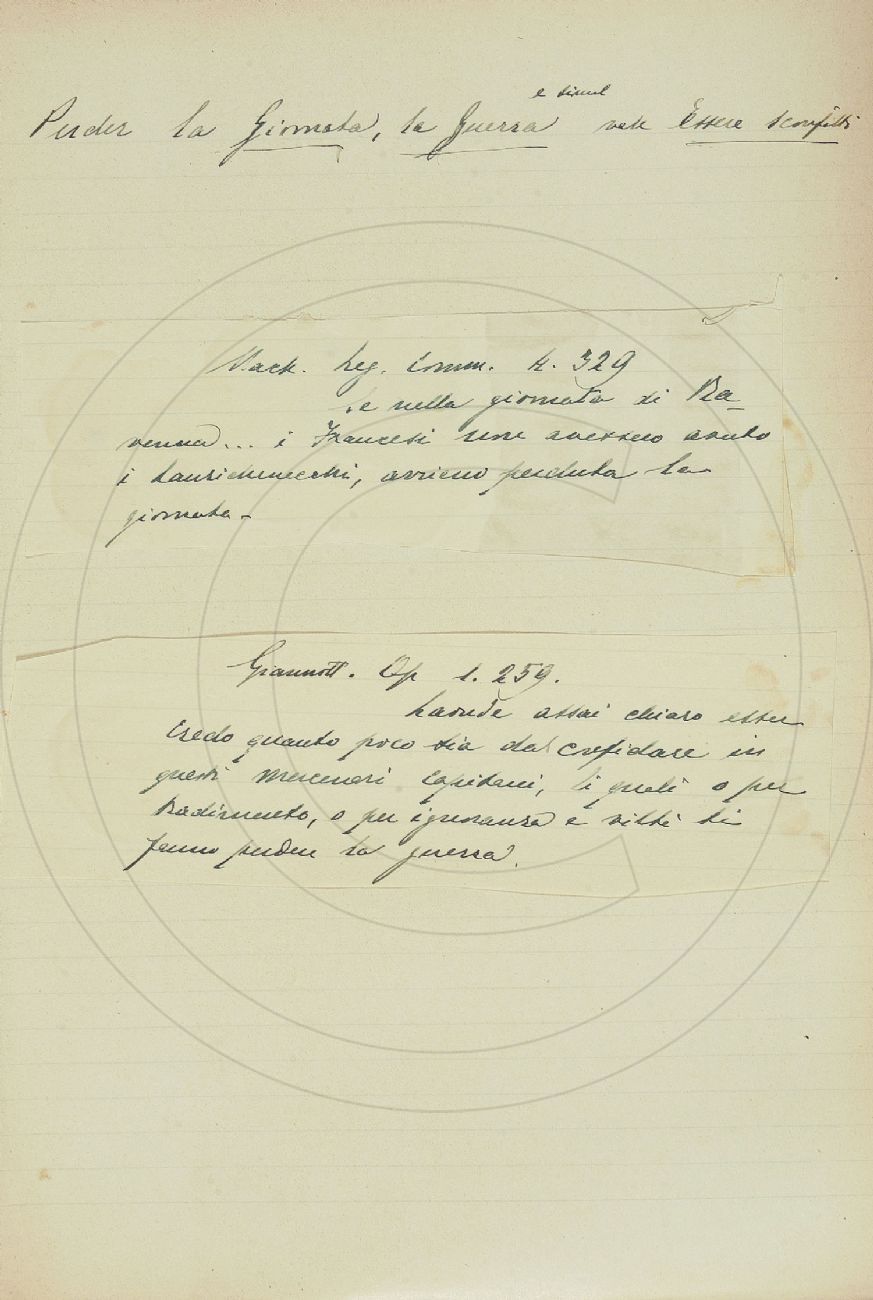 e simil
Perder la Giornata, la Guerra vale Essere sconfitti
Mach. Leg. Comm. 2. 329
Se nella giornata di Ra-
venna... i Francesi non avessero avuto
i Lanzichenecchi, arrieno perduta la
giornata.
Giannott. Op 1. 259.
Laonde assai chiaro esser
credo quanto poco sia da confidare in
questi mercenari capitani, li quali o per
tradimento, o per ignoranza e viltà ti
fanno perdere la guerra.